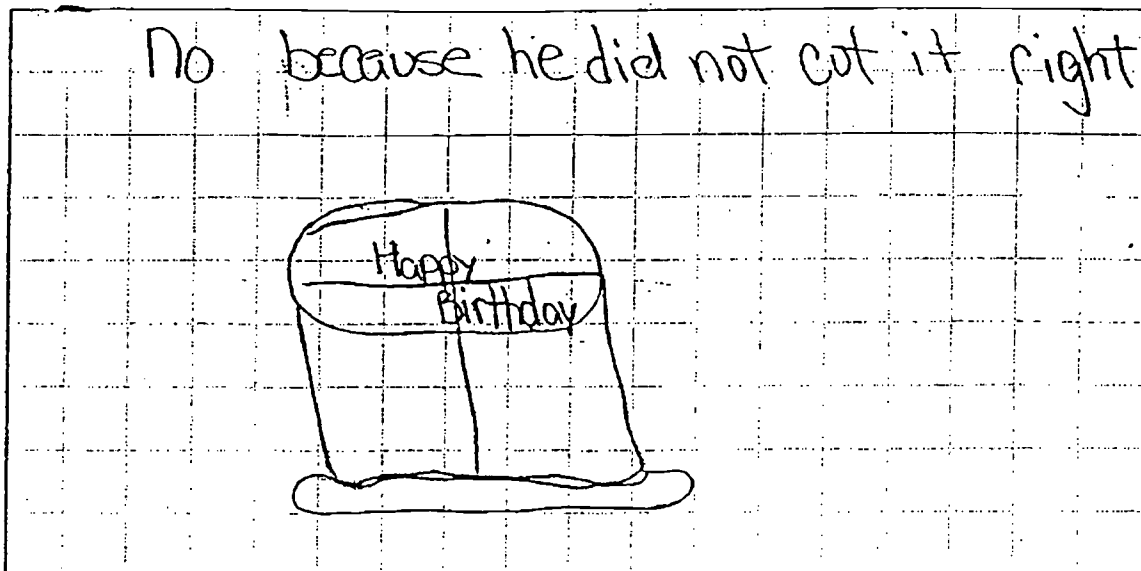 No because he did not cut it right
Happy
Birthday